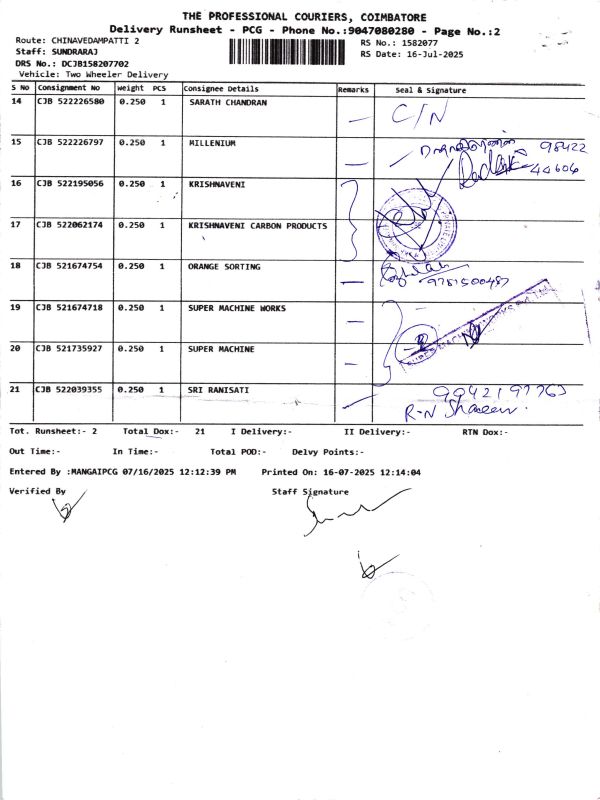 THE PROFESSIONAL COURIERS, COIMBATORE
Delivery Runsheet - PCG - Phone No.:9047080280 - Page No.:2
Route: CHINAVEDAMPATTI 2
RS No.: 1582077
Staff: SUNDRARAJ
RS Date: 16-Jul-2025
DRS No.: DCJB158207702
Vehicle: Two Wheeler Delivery
S No Consignment No Weight PCS Consignee Details Remarks Seal & Signature
14 CJB 522226580 0.250 1 SARATH CHANDRAN C/N
15 CJB 522226797 0.250 1 MILLENIUM 98422
44606
16 CJB 522195056 0.250 1 KRISHNAVENI
17 CJB 522062174 0.250 1 KRISHNAVENI CARBON PRODUCTS
18 CJB 521674754 0.250 1 ORANGE SORTING
19 CJB 521674718 0.250 1 SUPER MACHINE WORKS
SUPER MACHINE WORKS PVT LTD
20 CJB 521735927 0.250 1 SUPER MACHINE
21 CJB 522039355 0.250 1 SRI RANISATI
R-N
Tot. Runsheet:- 2 Total Dox:- 21 I Delivery:- II Delivery:- RTN Dox:-
Out Time:- In Time:- Total POD:- Delvy Points:-
Entered By :MANGAIPCG 07/16/2025 12:12:39 PM Printed On: 16-07-2025 12:14:04
Verified By Staff Signature